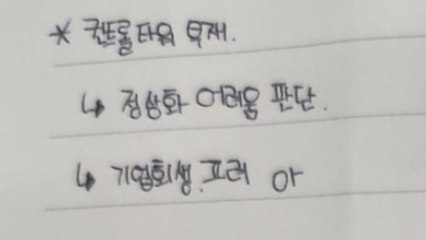 * 컨트롤타워 부재.
↳ 정상화 어려움 판단.
↳ 기업회생.프러 아